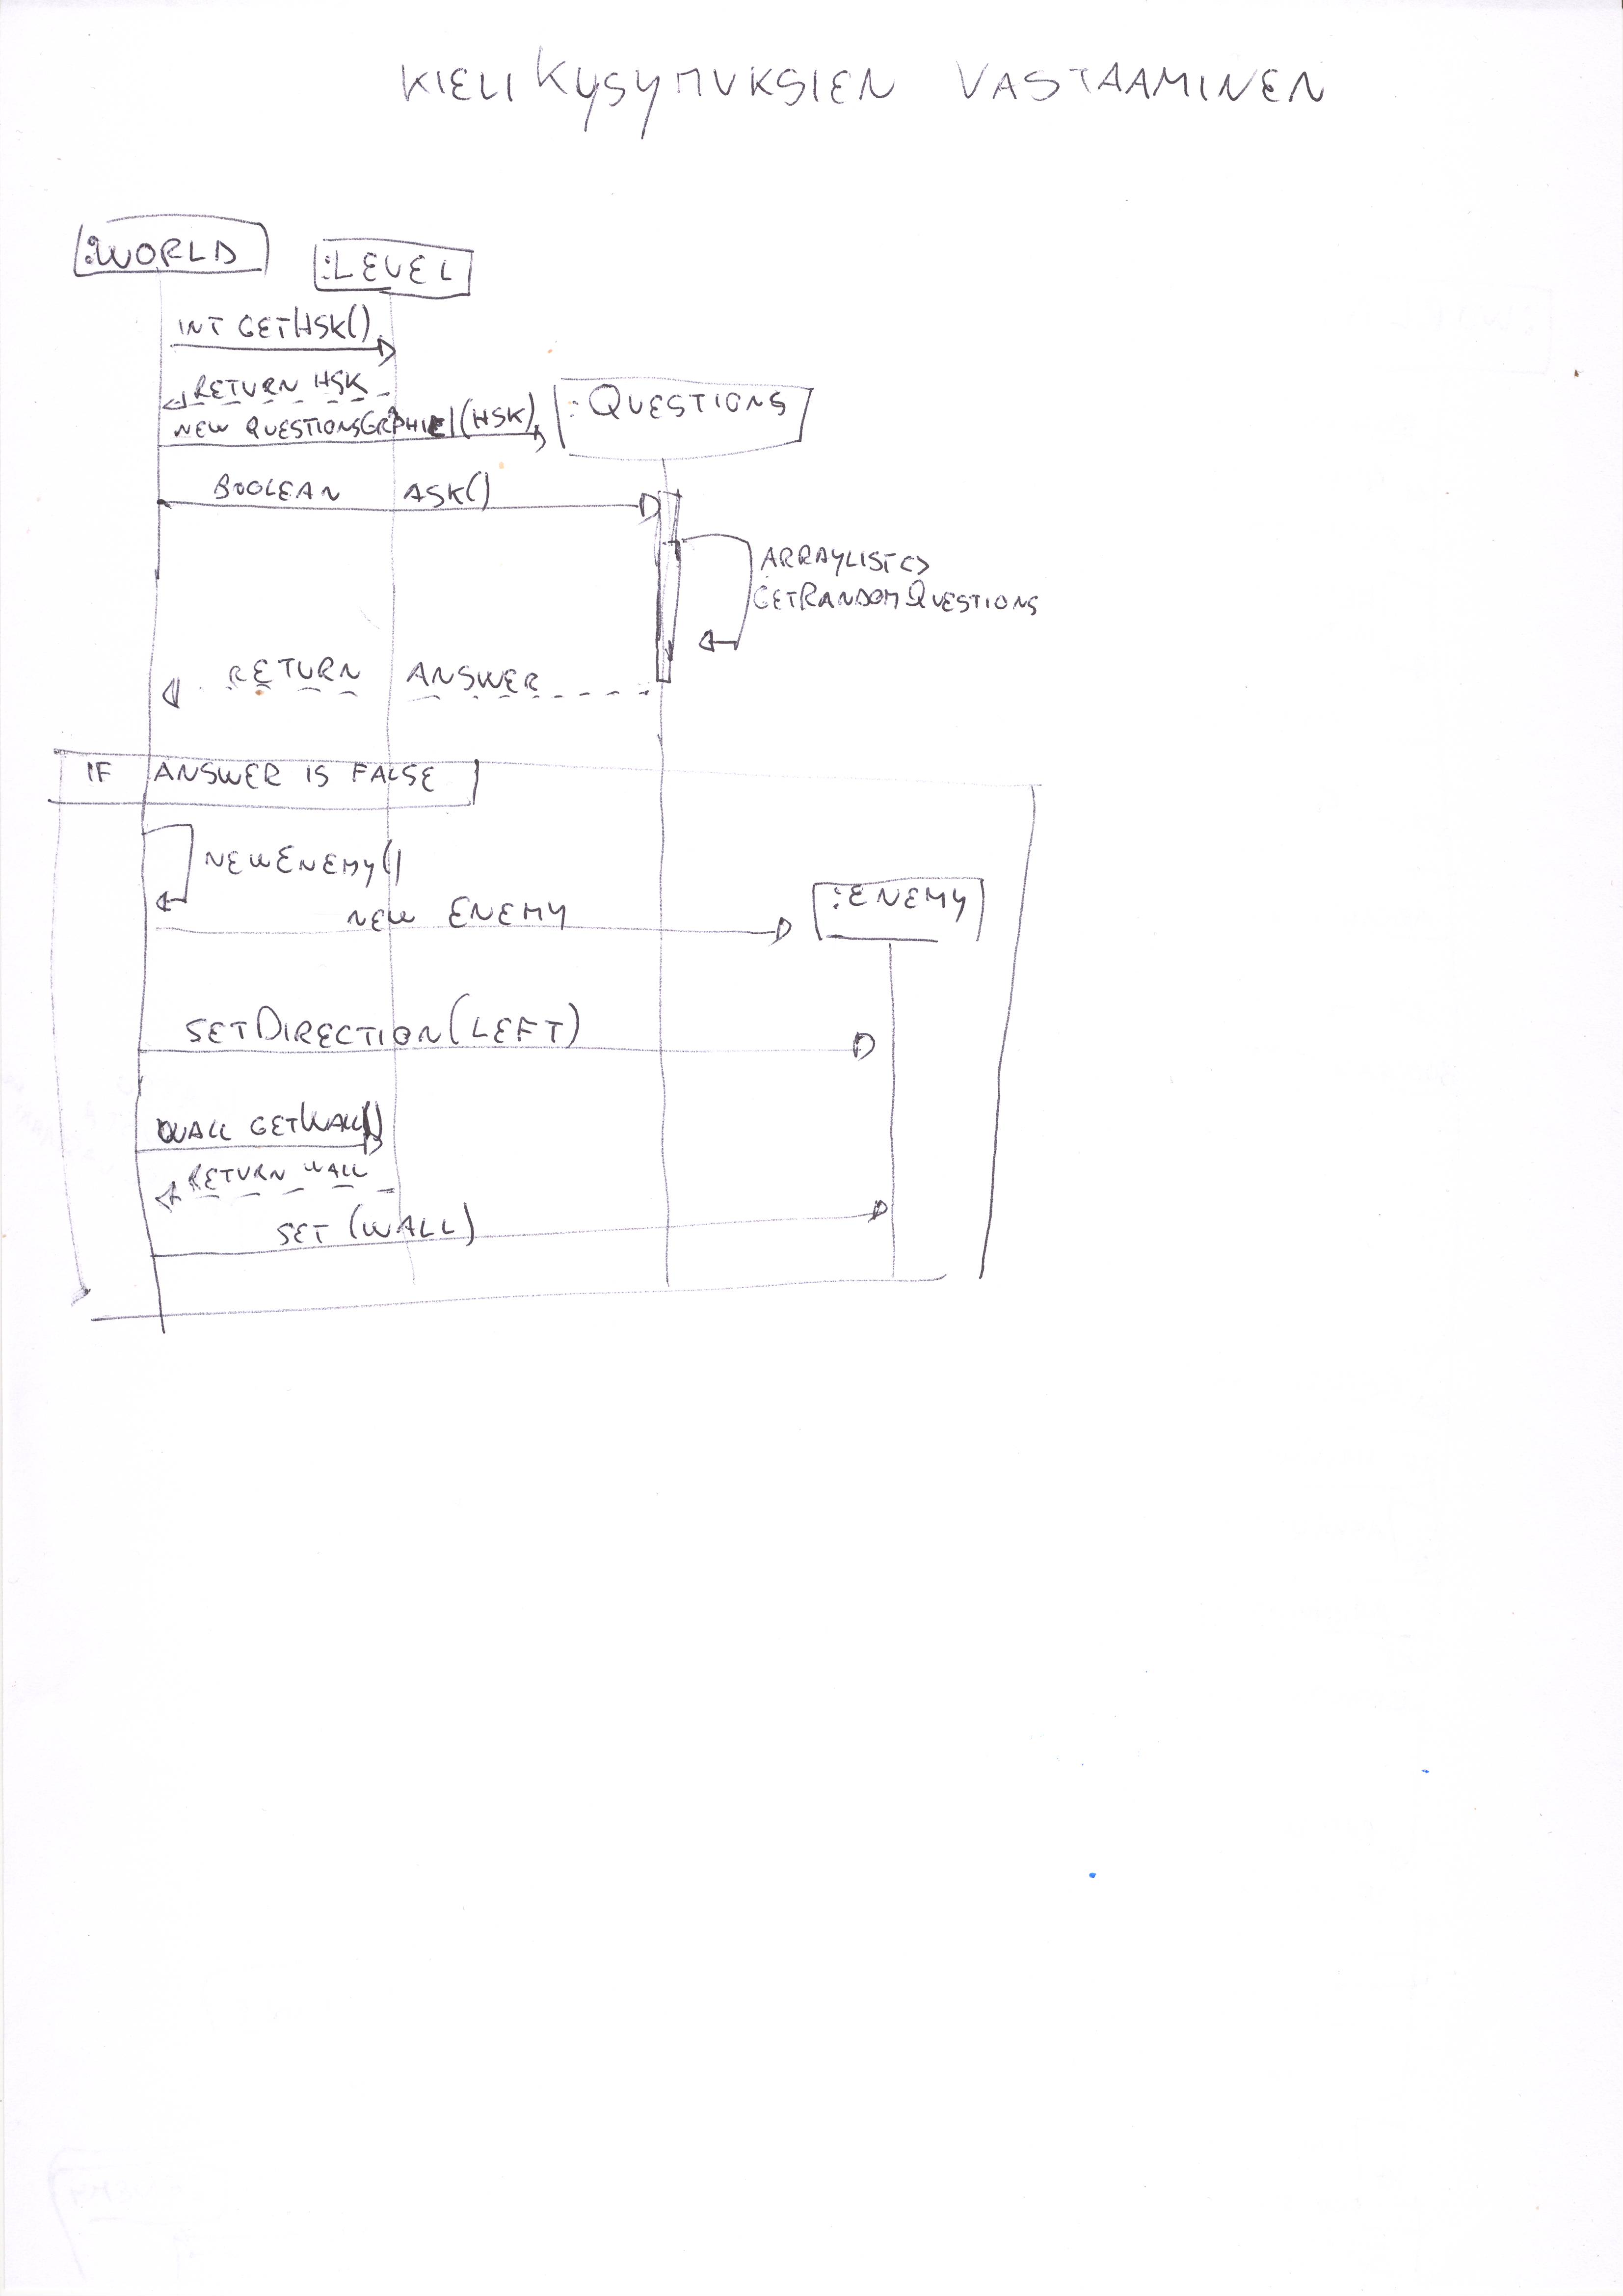 KIELIKYSYMYKSIEN VASTAAMINEN
:WORLD
:LEVEL
INT GETHSK()
RETURN HSK
:QUESTIONS
NEW QUESTIONSGRAPHIC(HSK)
BOOLEAN ASK()
ARRAYLIST<>
GETRANDOMQUESTIONS
RETURN ANSWER
IF ANSWER IS FALSE
NEWENEMY()
:ENEMY
NEW ENEMY
SETDIRECTION(LEFT)
WALL GETWALL()
RETURN WALL
SET (WALL)